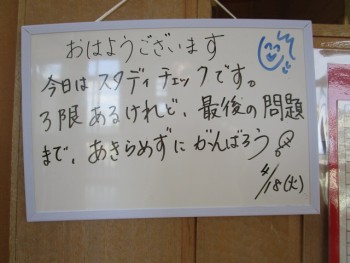 おはようございます
今日はスタディチェックです。
3限あるけれど、最後の問題
まで、あきらめずにがんばろう
4/18(火)